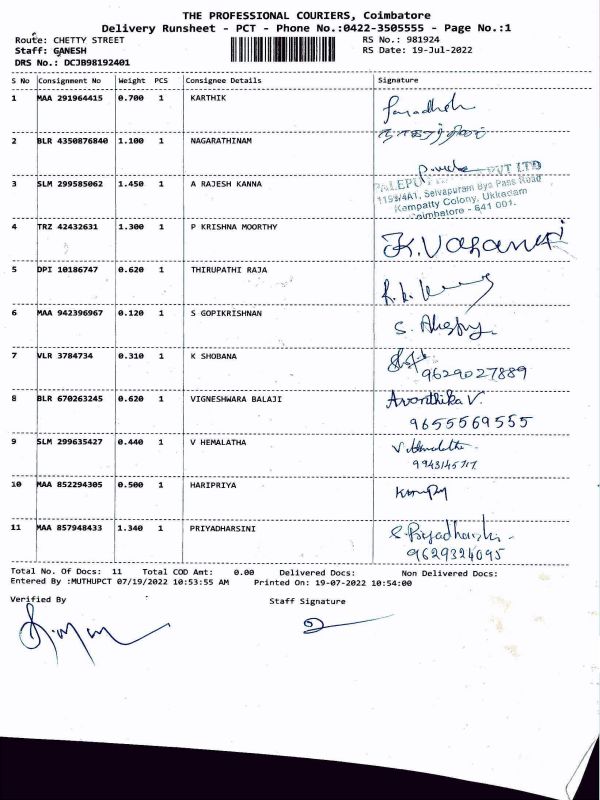 THE PROFESSIONAL COURIERS, Coimbatore
Delivery Runsheet - PCT - Phone No.:0422-3505555 - Page No.:1
Route: CHETTY STREET RS No.: 981924
Staff: GANESH RS Date: 19-Jul-2022
DRS No.: DCJB98192401
S No Consignment No Weight PCS Consignee Details Signature
1 MAA 291964415 0.700 1 KARTHIK
2 BLR 4350876840 1.100 1 NAGARATHINAM
PVT LTD
3 SLM 299585062 1.450 1 A RAJESH KANNA
1193/4A1, Selvapuram Bye Pass Road
Kempatty Colony, Ukkadam
Coimbatore - 641 001.
4 TRZ 42432631 1.300 1 P KRISHNA MOORTHY
5 DPI 10186747 0.620 1 THIRUPATHI RAJA
6 MAA 942396967 0.120 1 S GOPIKRISHNAN
7 VLR 3784734 0.310 1 K SHOBANA
9629027889
8 BLR 670263245 0.620 1 VIGNESHWARA BALAJI Avanthika V.
9655569555
9 SLM 299635427 0.440 1 V HEMALATHA V. Hemalatha
10 MAA 852294305 0.500 1 HARIPRIYA
11 MAA 857948433 1.340 1 PRIYADHARSINI S. Priyadharshi
9629324095
Total No. Of Docs: 11 Total COD Amt: 0.00 Delivered Docs: Non Delivered Docs:
Entered By :MUTHUPCT 07/19/2022 10:53:55 AM Printed On: 19-07-2022 10:54:00
Verified By Staff Signature